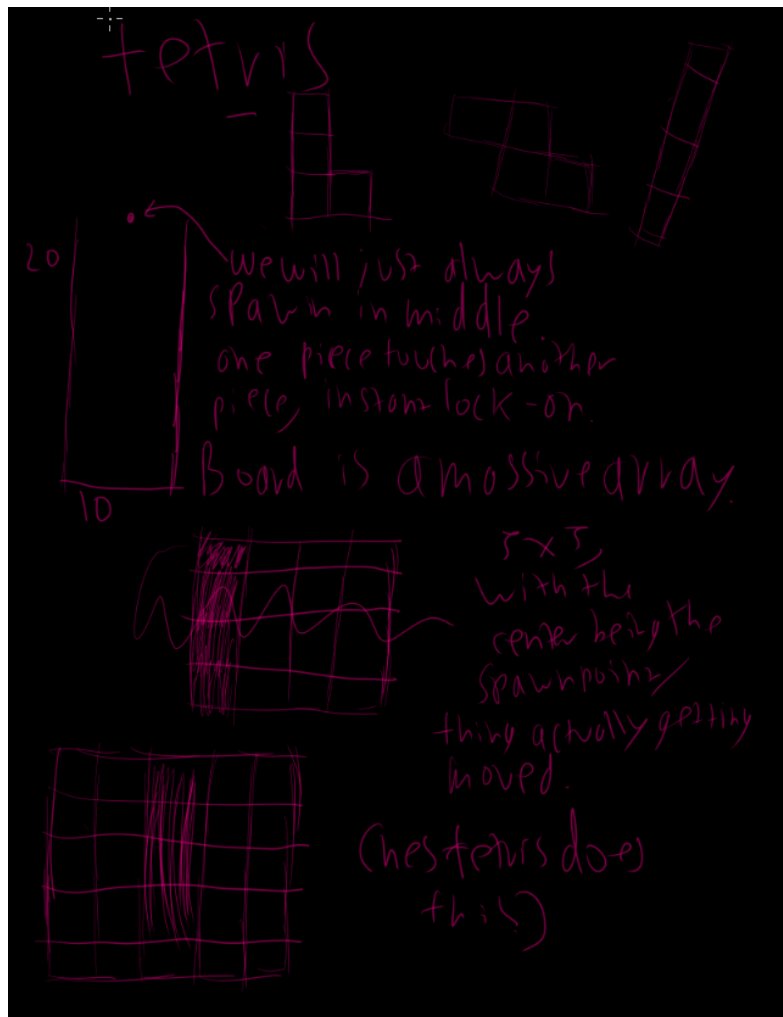 tetris
20
we will just always
spawn in middle
one piece touches another
piece, instant lock-on.
Board is a massive array.
10
5x5,
with the
center being the
spawnpoint/
thing actually getting
moved.
(nes tetris does
this)